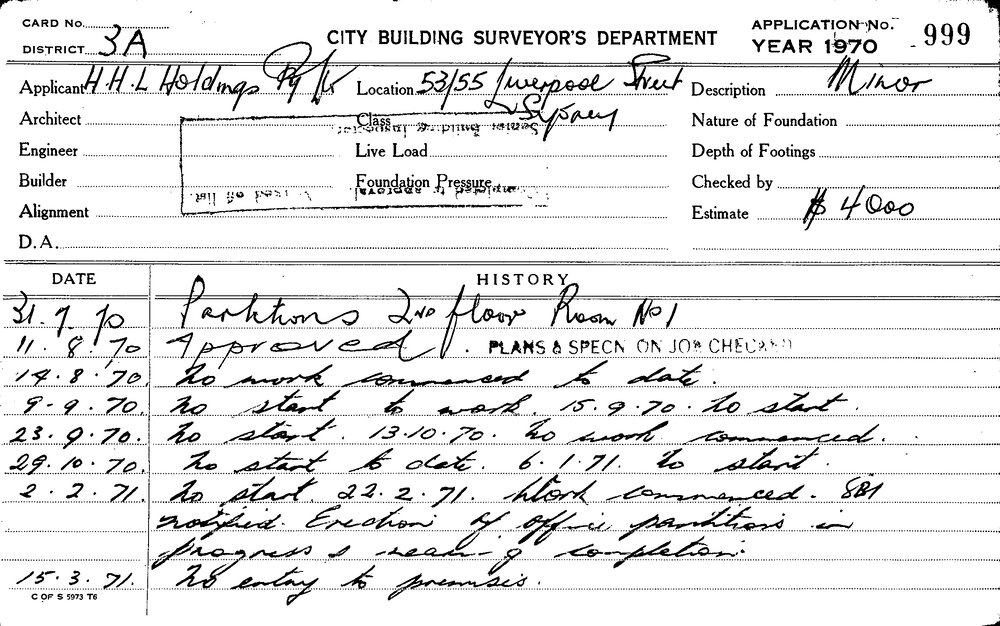 CARD No. 3A
DISTRICT
CITY BUILDING SURVEYOR'S DEPARTMENT
APPLICATION No.
YEAR 1970 999
Applicant H.H.L Holdings Pty Ltd Location 53/55 Liverpool Street Description Minor
Sydney
Architect Class Nature of Foundation
Senior Building Inspector
Engineer Live Load Depth of Footings
Builder Foundation Pressure Checked by
Completed to approval used off list
Alignment Estimate $ 4000
D.A.
DATE HISTORY
31.7.70 Partitions 2nd floor Room No 1
11.8.70 Approved. PLANS & SPECN ON JOB CHECKED
14.8.70. No work commenced to date.
9.9.70. No start to work. 15.9.70. No start.
23.9.70. No start. 13.10.70. No work commenced.
29.10.70. No start to date. 6.1.71. No start.
2.2.71. No start. 22.2.71. Work commenced. SBI
notified. Erection of office partitions in
progress & near-g completion.
15.3.71. No entry to premises.
C OF S 5973 T6